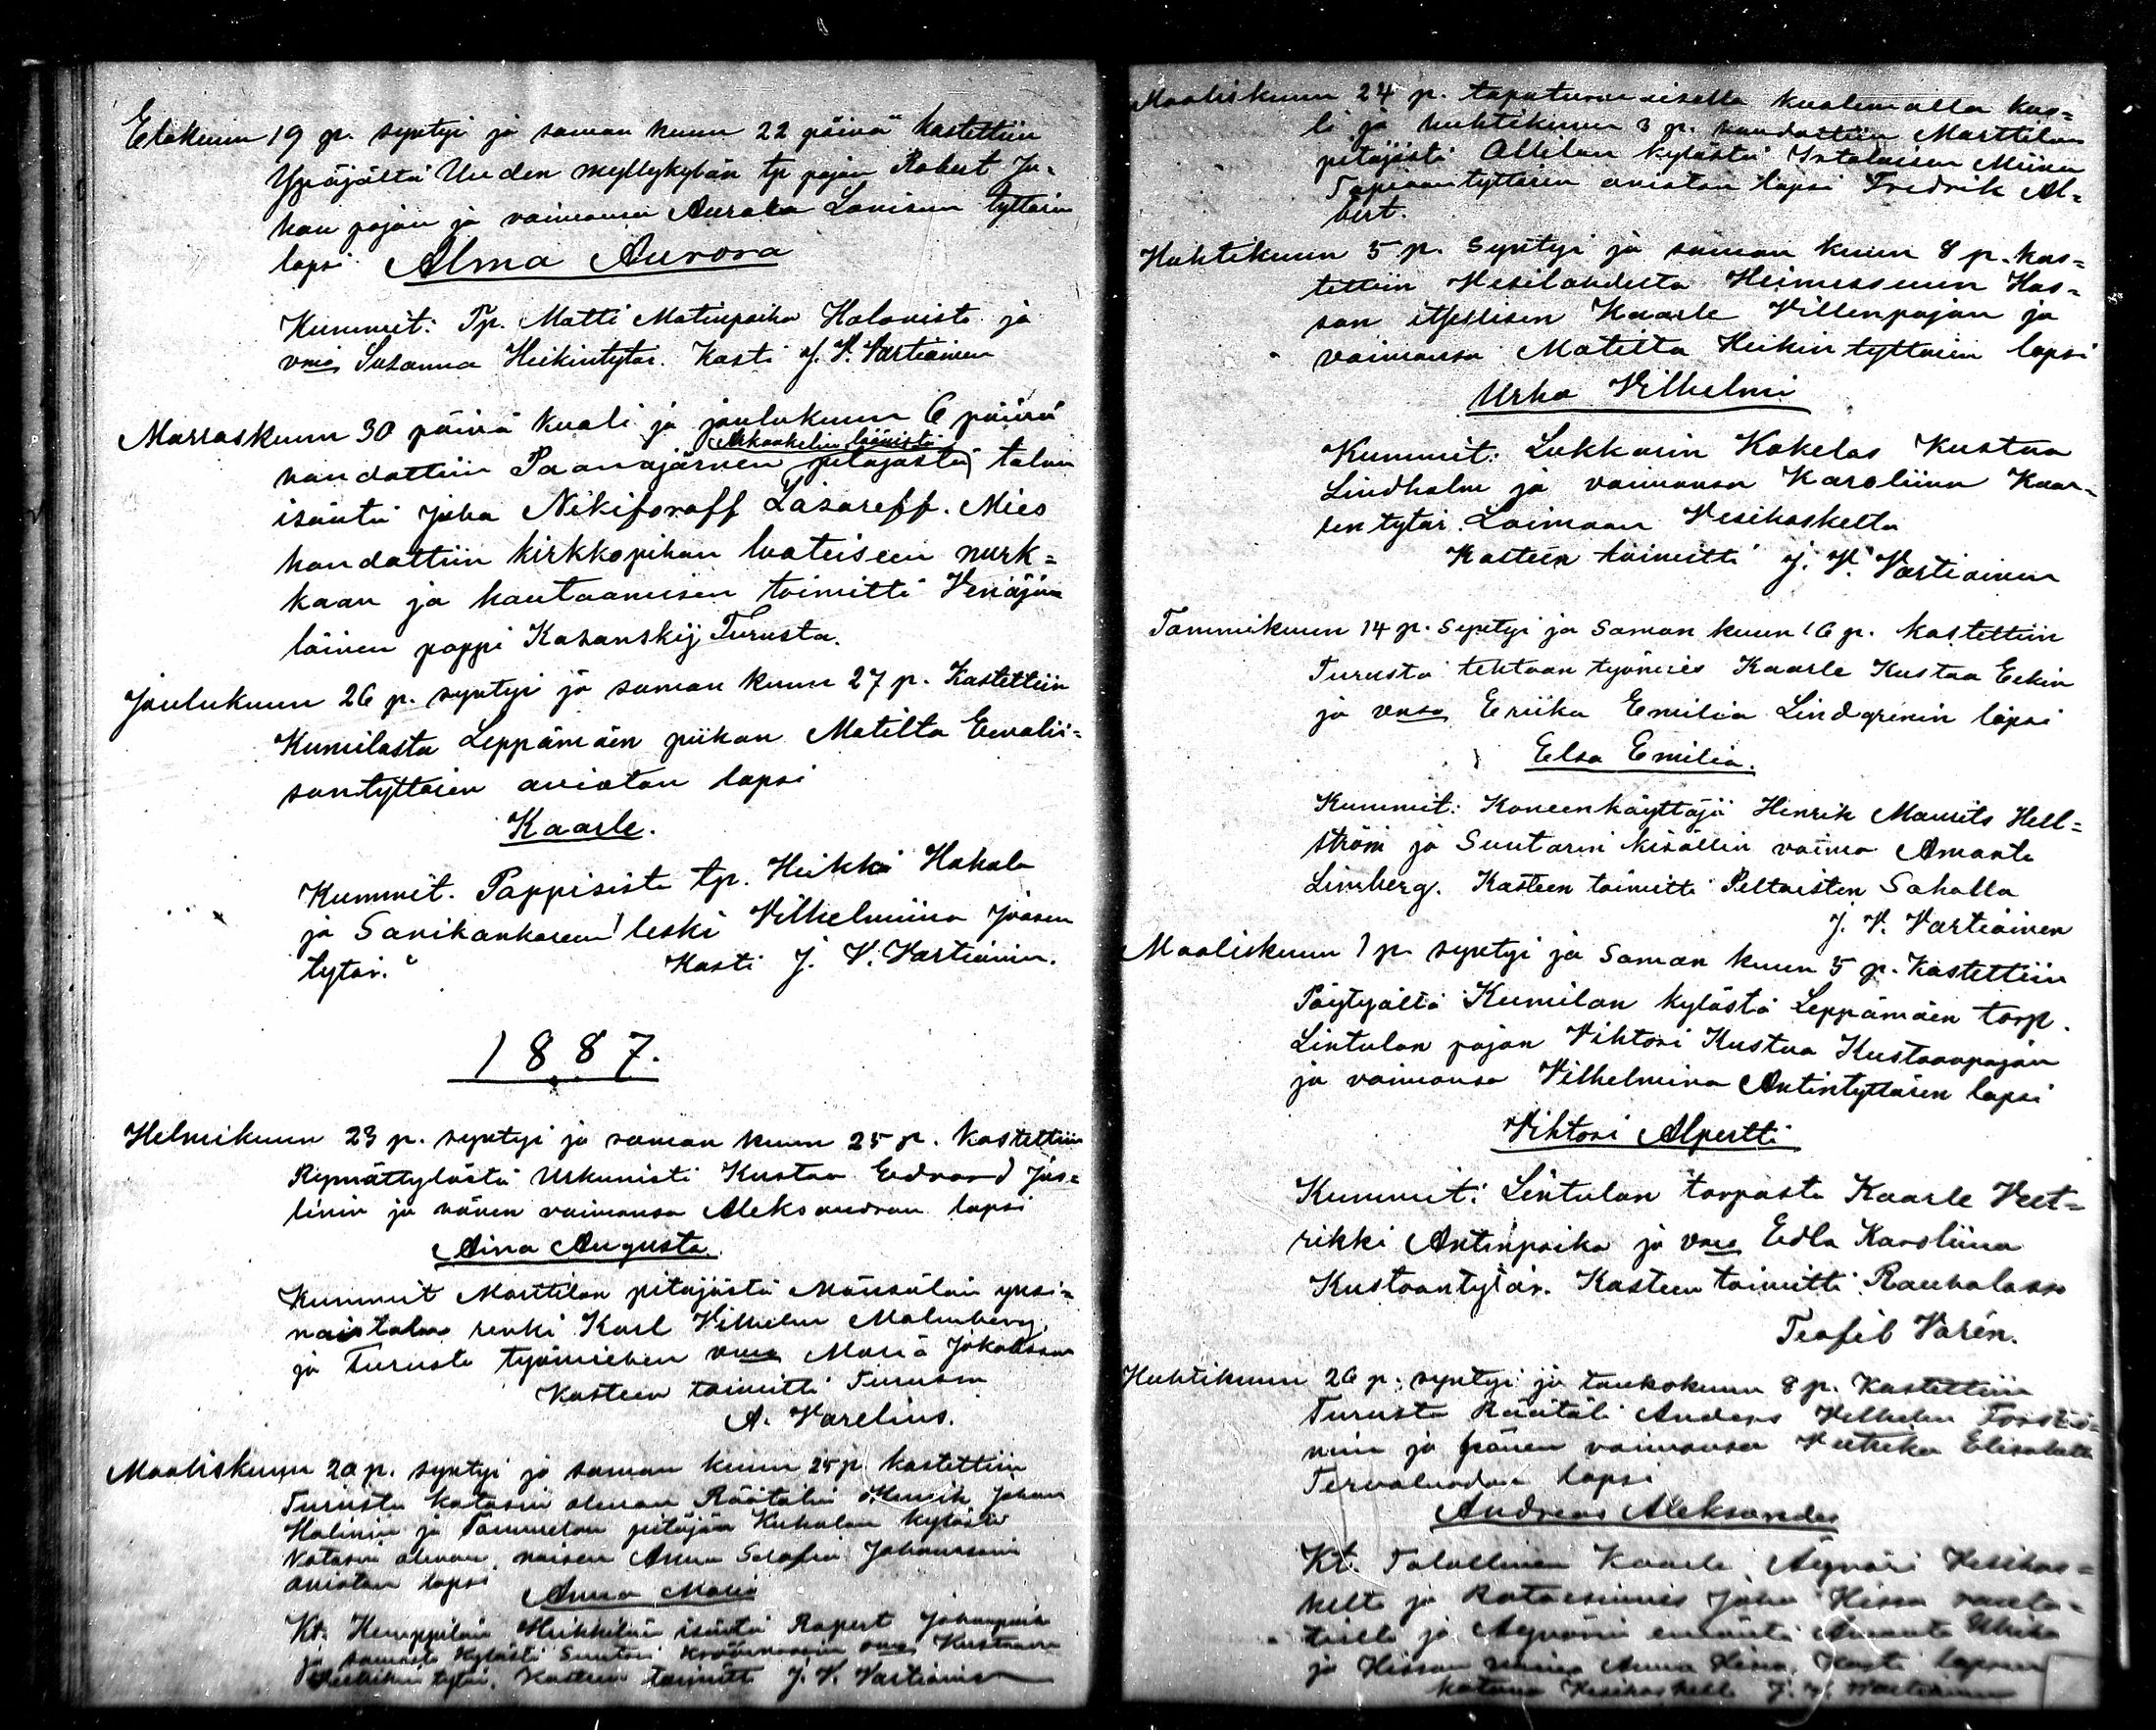 Elokuun 19 p. syntyi ja saman kuun 22 päivä kastettiin
Ypäjältä Uuden myllykylän tp pojan Robert Ju-
han pojan ja vaimonsa Aurora Lovisan tyttären
lapsi Alma Aurora
Kummit: Tp. Matti Matinpoika Halonista ja
vmo Susanna Heikintytär. Kasti J. V. Vartiainen
Marraskuun 30 päivä kuoli ja joulukuun 6 päivä
Arkankelin läänistä
haudattiin Paanajärven pitäjästä talon
isäntä Juha Nikiforoff Lasareff. Mies
haudattiin kirkkopihan luoteiseen nurk=
kaan ja hautaamisen toimitti Venäjä
läinen pappi Kasanskij Turusta.
Joulukuun 26 p. syntyi ja saman kuun 27 p. Kastettiin
Kumilasta Leppämäen piikan Matilta Eevalii=
santyttären aviotan lapsi
Kaarle.
Kummit. Pappisista tp. Heikki Hakala
ja Sanikankareen leski Vilhelmiina Joosen
tytär. Kasti J. V. Vartiainen.
1887.
Helmikuun 23 p. syntyi ja saman kuun 25 p. kastettiin
Rymättylästä Urkunisti Kustaa Edvard Jus=
linin ja hänen vaimonsa Aleksandran lapsi
Aina Augusta.
Kummit Marttilan pitäjästä yksi=
näistalon renki Karl Vilhelm Malmberg,
ja Turusta työmiehen vmo Maria Jakobsson
Kasteen toimitti Turussa
A. Varelius.
Maaliskuun 20 p. syntyi ja saman kuun 25 p. kastettiin
Turusta katosin olevan Räätälin Henrik Johan
Halinin ja Tammelan pitäjän Kuhalan kylästä
katosin olevan naisen Anna Serafia Johanssonin
aviotan lapsi Anna Maria
Kt. Kemppilän Heikkilän isäntä Rapert Johanpoika
ja samasta kylästä Suutari vmo Kustaava
Heikin tytär. Kasteen toimitti J. V. Vartiainen
Maaliskuun 24 p. tapaturmaisella kuolemalla kuo=
li ja huhtikuun 3 p. haudattiin Marttilan
pitäjästä Ollilan kylästä Intalaisen Miina
Tapiaan tyttären aviotan lapsi Fredrik Al=
bert.
Huhtikuun 5 p. syntyi ja saman kuun 8 p. kas=
tettiin Mesilahdesta Heinussuun Has=
san itsellisen Kaarle Villenpojan ja
vaimonsa Matilta Heikin tyttären lapsi
Urho Vilhelmi
Kummit: Lukkarin Kokelas Kustaa
Lindholm ja vaimonsa Karoliina Kaar-
len tytär. Loimaan Vesikoskelta
Kasteen toimitti J. V. Vartiainen
Tammikuun 14 p. syntyi ja saman kuun 16 p. kastettiin
Turusta tehtaan työmies Kaarle Kustaa Eekin
ja vmsa Eriika Emilia Lindgrenin lapsi
Elsa Emilia.
Kummit: Koneenkäyttäjä Hinrik Maurits Hell=
ström ja Suutarin kisällin vaimo Amanta
Limberg. Kasteen toimitti Peltoisten Sahalla
J. V. Vartiainen
Maaliskuun 1 p. syntyi ja saman kuun 5 p. kastettiin
Pöytyältä Kumilan kylästä Leppämäen torp.
Lintulan pojan Vihtori Kustaa Kustaanpojan
ja vaimonsa Vilhelmina Antintyttären lapsi
Vihtori Alpertti
Kummit: Lintulan torpasta Kaarle Veet=
rikki Antinpoika ja vmo Edla Karoliina
Kustaantytär. Kasteen toimitti Rauhalassa
Teofil Varén.
Huhtikuun 26 p. syntyi ja toukokuun 8 p. kastettiin
Turusta Räätäli Anders Vilhelm
ja hänen vaimonsa Elisabeth
lapsi
Andreas Aleksander
Kt. Talollinen Kaarle Äyväri Vesikos=
kelta ja Juho Hissa
ja Äyvärin emäntä Amanta Ulrika
ja Hissan vaimo Anna Hissa. Kasti lapsen
kotona Vesikoskella J. V. Vartiainen